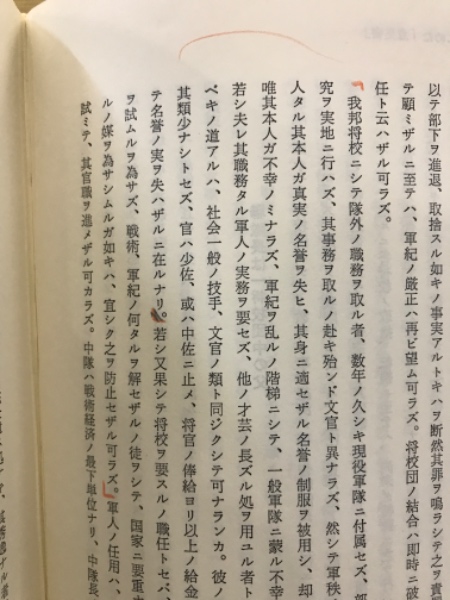 以テ部下ヲ進退、取捨スル如キノ事実アルトキハ断然其罪ヲ鳴ラシテ之ヲ責
テ顧ミザルニ至テハ、軍紀ノ厳正ハ再ビ望ム可ラズ。将校団ノ結合ハ即時ニ破
任ト云ハザル可ラズ。
我邦将校ニシテ隊外ノ職務ヲ取ル者、数年ノ久シキ現役軍隊ニ付属セズ、部
究ヲ実地ニ行ハズ、其事務ヲ取ルノ赴キ殆ンド文官ト異ナラズ、然シテ軍秩
人タル其本人ガ真実ノ名誉ヲ失ヒ、其身ニ適セザル名誉ノ制服ヲ被用シ、却
唯其本人ガ不幸ノミナラズ、軍紀ヲ乱ルノ階梯ニシテ、一般軍隊ニ蒙ル不幸
若シ夫レ其職務タル軍人ノ実務ヲ要セズ、他ノ才芸ノ長ズル処ヲ用ユル者ト
ベキノ道アルハ、社会一般ノ技手、文官ノ類ト同ジクシテ可ナランカ。彼ノ
其類少ナシトセズ、官ハ少佐、或ハ中佐ニ止メ、将官ノ俸給ヨリ以上ノ給金
テ名誉ノ実ヲ失ハザルニ在ルナリ。若シ又果シテ将校ヲ要スルノ職任トセバ、
ヲ試ムルヲ為サズ、戦術、軍紀ノ何タルヲ解セザルノ徒ヲシテ、国家ニ要重
ルノ媒ヲ為サシムルガ如キハ、宜シク之ヲ防止セザル可ラズ。軍人ノ任用ハ、
試ミテ、其官職ヲ進メザル可カラズ。中隊ハ戦術経済ノ最下単位ナリ、中隊長